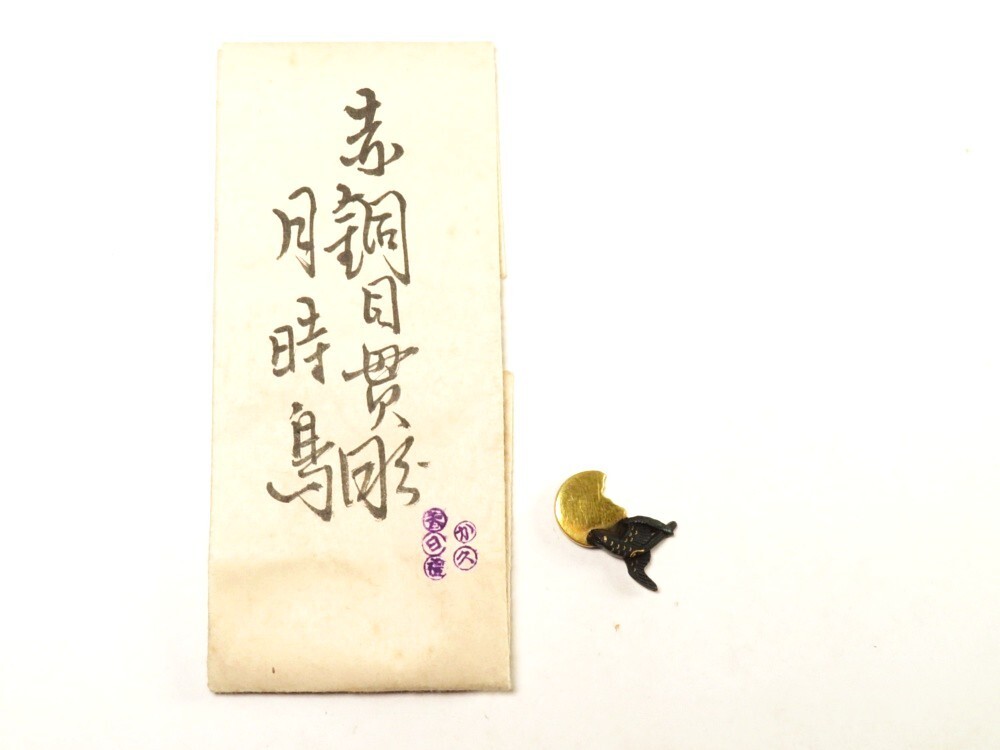 赤銅目貫彫
月時鳥
か久